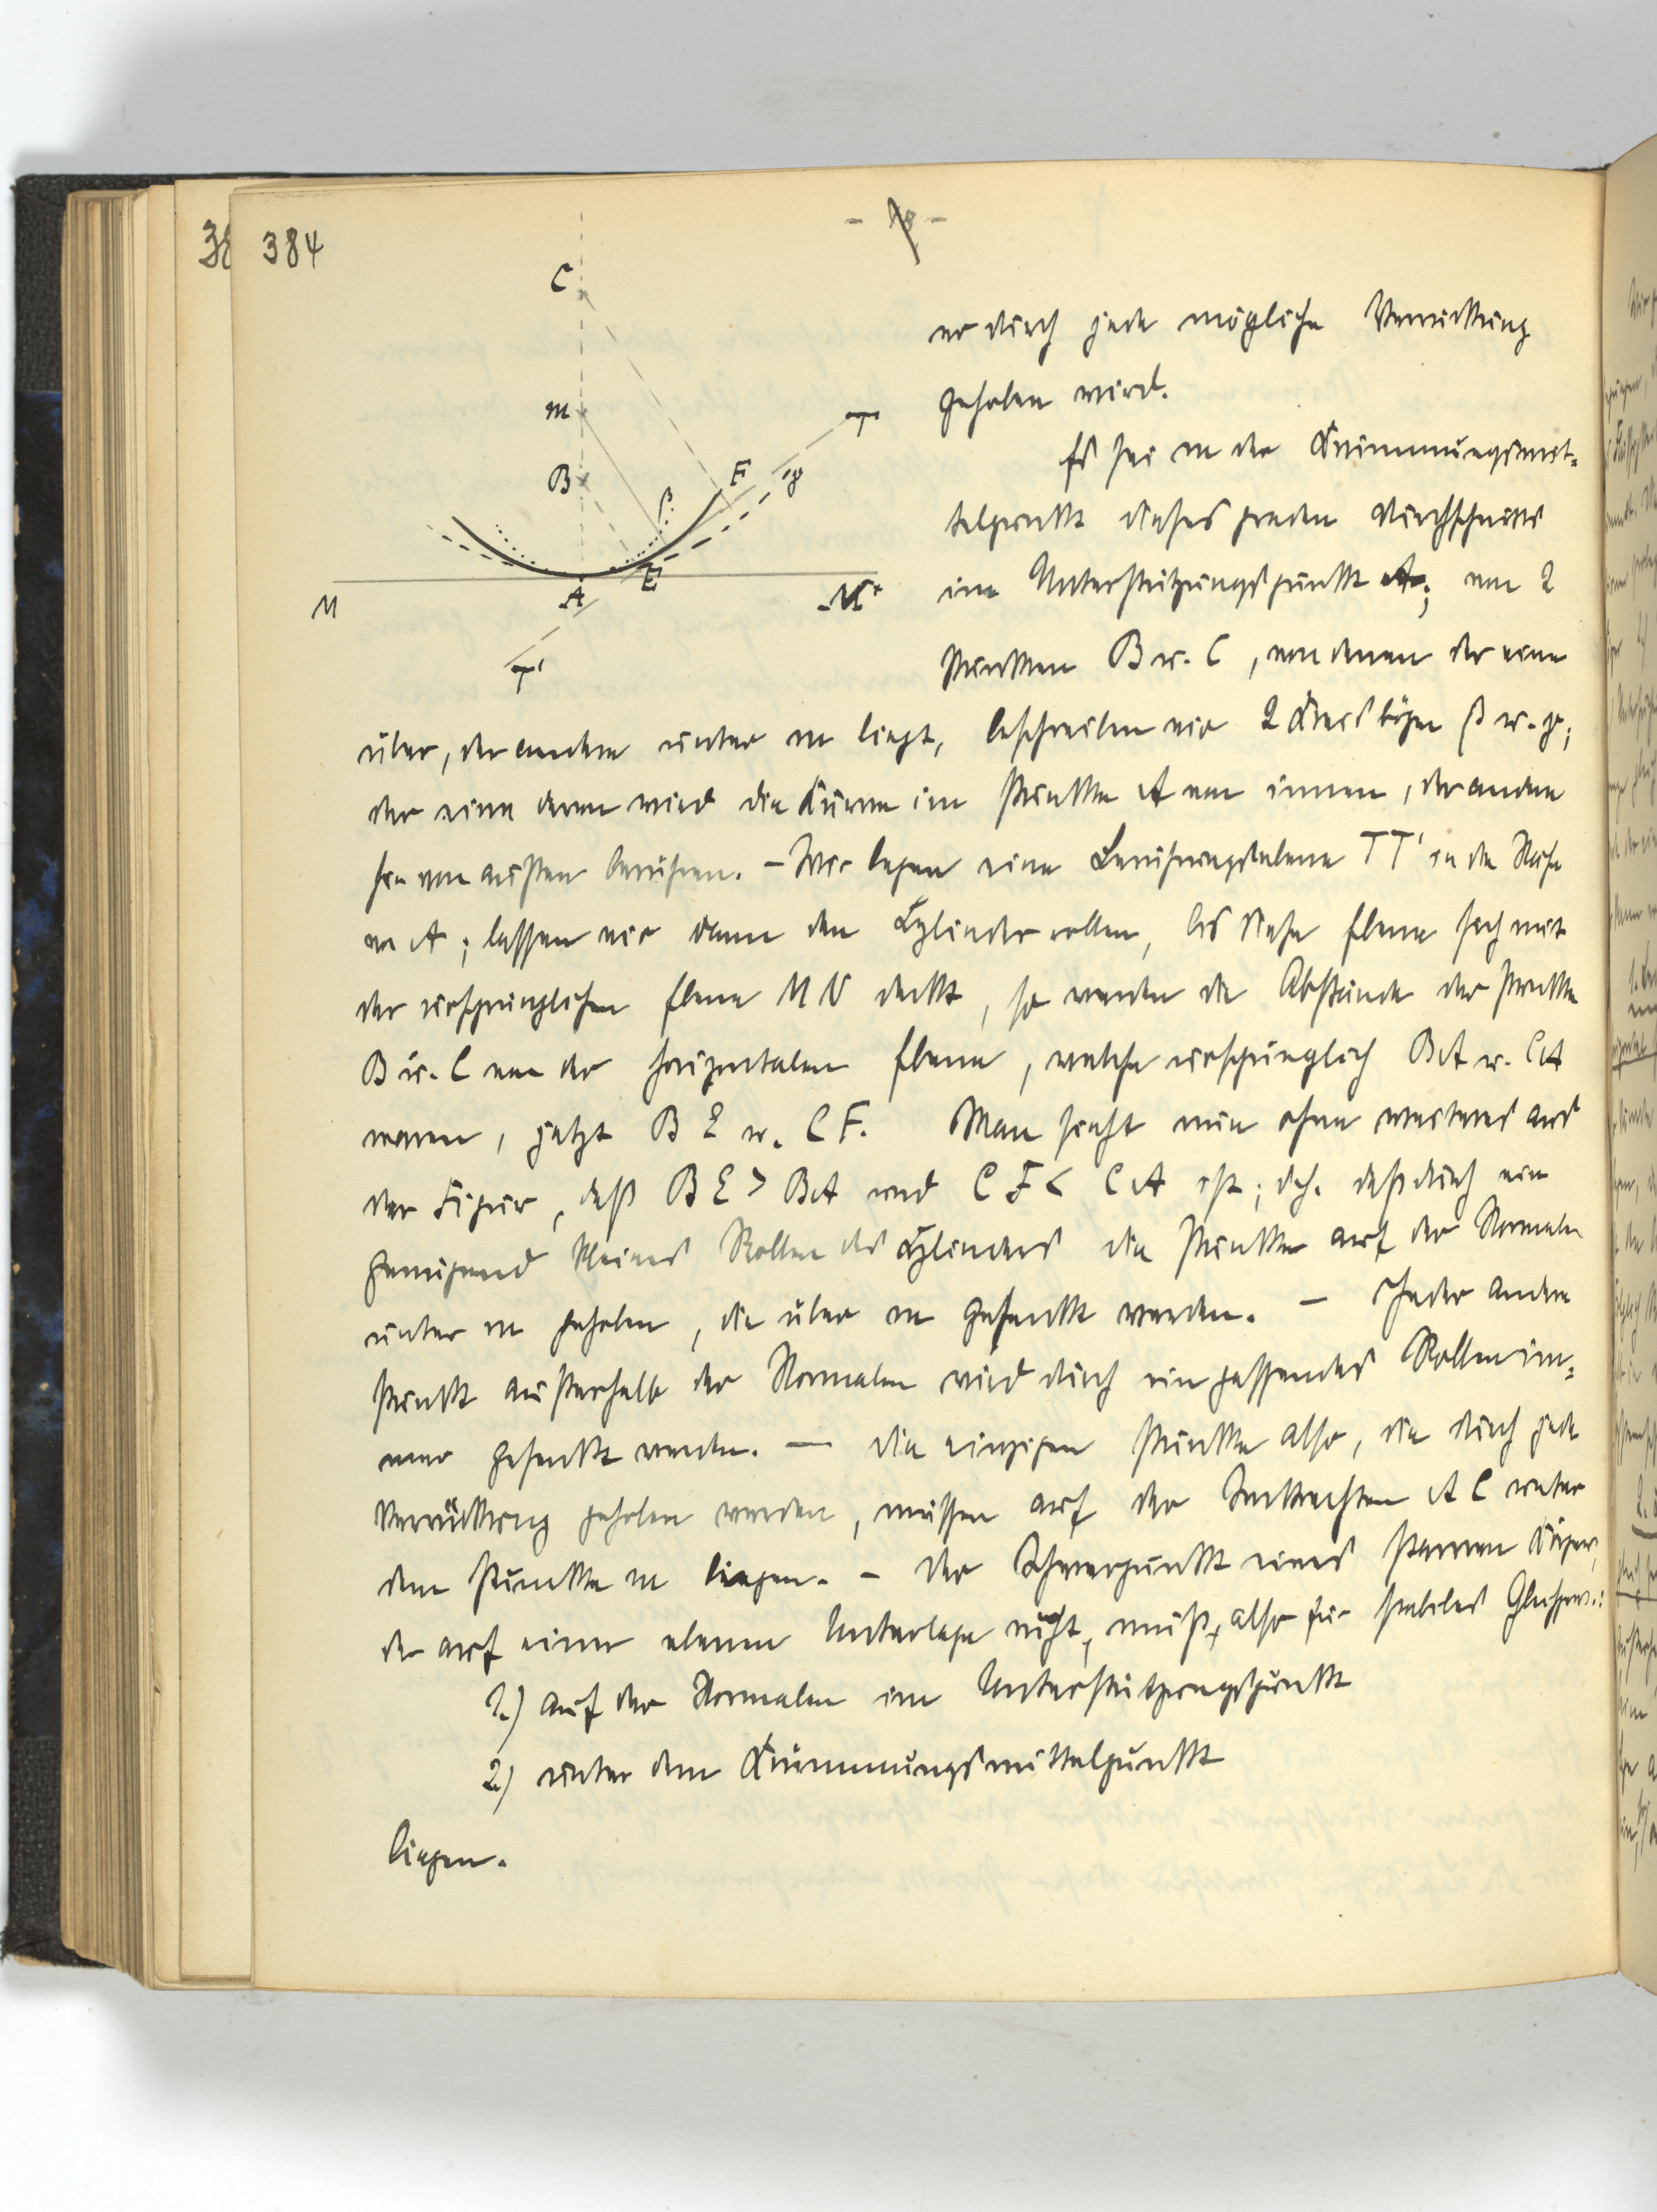 384
- 18 -
C
m
B
β
F
γ
T
A
E
M
N
T'
er durch jede mögliche Verrückung
gehoben wird.
Es sei m der Krümmungsmit-
telpunkt dieses geraden Durchschnitts
im Unterstützungspunkt A; um 2
Punkten B u. C, von denen der eine
über, der andere unter m liegt, beschreiben wir 2 Kreisbögen β u. γ;
der eine davon wird die Kurve im Punkte A von innen, der andere
sie von außen berühren. – Wir legen eine Berührungsebene TT' in der Nähe
von A; lassen wir dann den Cylinder rollen, bis diese Ebene sich mit
der ursprünglichen Ebene MN deckt, so werden die Abstände der Punkte
B u. C von der horizontalen Ebene, welche ursprünglich BA u. CA
waren, jetzt BE u. CF. Man sieht nun ohne weiteres aus
der Figur, daß BE > BA und CF < CA ist; d.h. daß durch ein
genügend kleines Rollen des Cylinders die Punkte auf der Normalen
unter m gehoben, die über m gesenkt werden. – Jeder andere
Punkt außerhalb der Normalen wird durch ein passendes Rollen im-
mer gesenkt werden. — Die einzigen Punkte also, die durch jede
Verrückung gehoben werden, müssen auf der Senkrechten AC unter
dem Punkte m liegen. – Der Schwerpunkt eines starren Körpers,
der auf einer ebenen Unterlage ruht, muß, also für stabiles Gleichgew.:
1.) auf der Normalen im Unterstützungspunkt
2.) unter dem Krümmungsmittelpunkt
liegen.